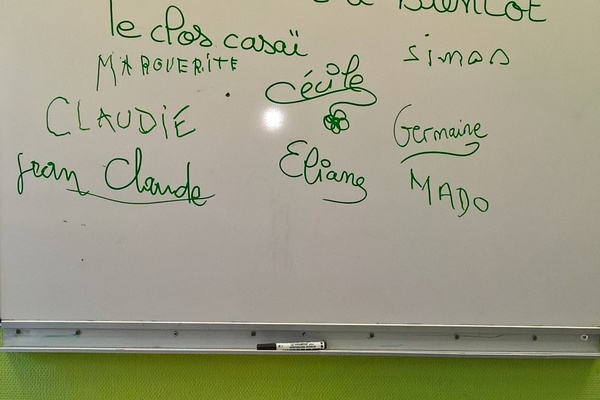 à Bientôt
le clos casaï
MARGUERITE
simon
Cécile
CLAUDIE
Germaine
Jean Claude
Eliane
MADO